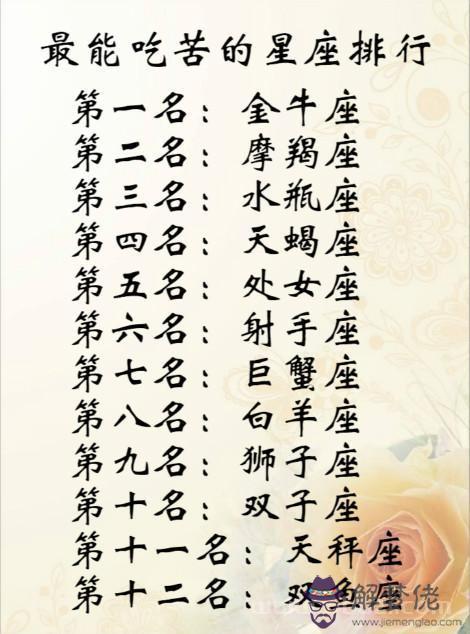 最能吃苦的星座排行
第一名：金牛座
第二名：摩羯座
第三名：水瓶座
第四名：天蝎座
第五名：处女座
第六名：射手座
第七名：巨蟹座
第八名：白羊座
第九名：狮子座
第十名：双子座
第十一名：天秤座
第十二名：双鱼座
解梦佬
www.jiemenglao.com